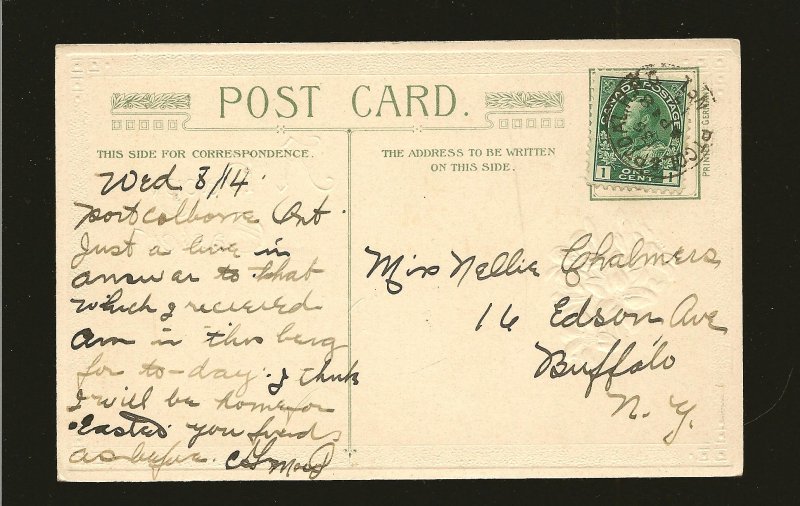 POST CARD.
THIS SIDE FOR CORRESPONDENCE.
THE ADDRESS TO BE WRITTEN
ON THIS SIDE.
CANADA POSTAGE
1 ONE CENT 1
Wed 8/14.
Port Colborne Ont.
Just a line in
answer to that
which I recieved
am in this berg
for to-day. I think
I will be home for
Easter your friend
as before.
Miss Nellie Chalmers
16 Edson Ave
Buffalo
N.Y.